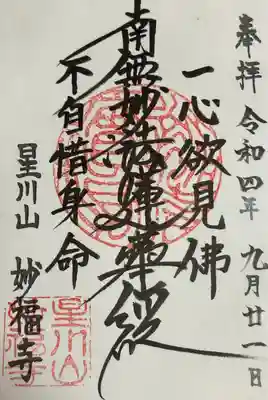 奉拝 令和四年 九月廿一日
一心欲見佛
南無妙法蓮華経
不自惜身命
星川山 妙福寺